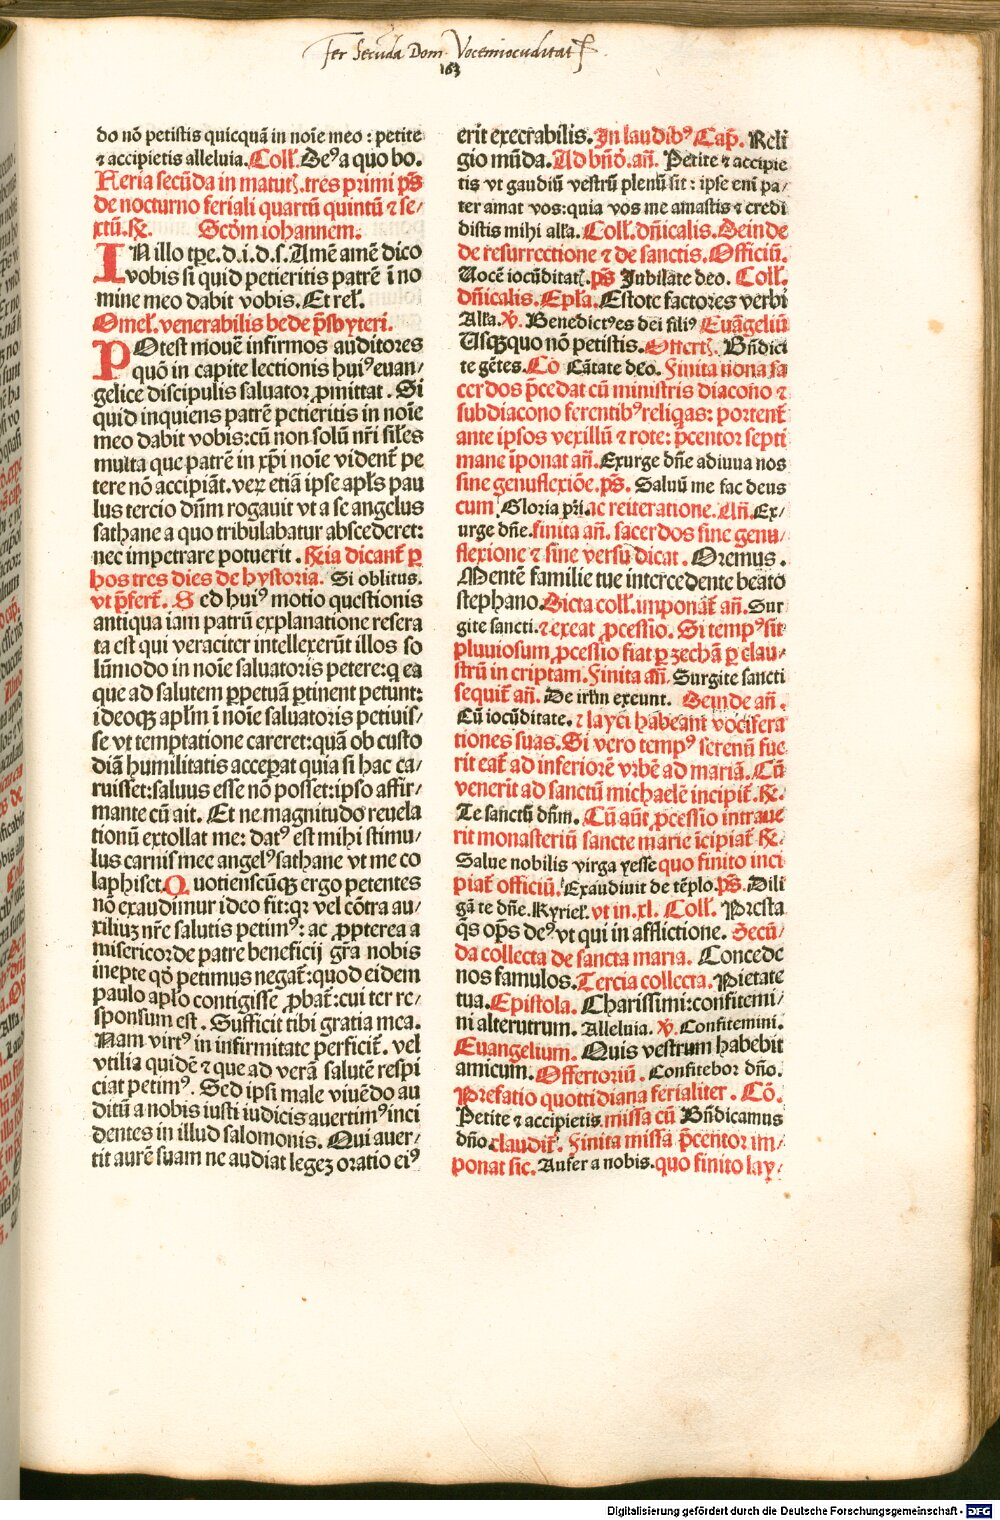 Fer Secūda Dom. Vocemiocuditat
163
do nō petistis quicquā in noīe meo : petite
⁊ accipietis alleluia. Coll̄. De⁹ a quo bo.
Feria secūda in matut̄. tres primi p̄s
de nocturno feriali quartū quintū ⁊ se/
xtū. R̄. Scd̄m iohannem.
IN illo tp̄e. d. i. d. s. Amē amē dico
vobis si quid petieritis patrē ī no
mine meo dabit vobis. Et rel̄.
Omel̄. venerabilis bede p̄sbyteri.
POtest mouē infirmos auditores
quō in capite lectionis hui⁹ euan/
gelice discipulis saluator ꝓmittat. Si
quid inquiens patrē petieritis in noīe
meo dabit vobis: cū non solū nr̄i sil̄es
multa que patrē in xp̄i noīe vident̄ pe
tere nō accipiāt. veꝝ etiā ipse apl̄s pau
lus tercio dn̄m rogauit vt a se angelus
sathane a quo tribulabatur abscederet:
nec impetrare potuerit. R̄ia dicant̄ ꝑ
hos tres dies de hystoria. Si oblitus.
vt p̄fert̄. Sed hui⁹ motio questionis
antiqua iam patrū explanatione resera
ta est qui veraciter intellexerūt illos so
lūmodo in noīe saluatoris petere: q̄ ea
que ad salutem ꝑpetuā ꝑtinent petunt:
ideoqꝫ apl̄m ī noīe saluatoris petiuis/
se vt temptatione careret: quā ob custo
diā humilitatis acceꝑat quia si hac ca/
ruisset: saluus esse nō posset: ipso affir/
mante cū ait. Et ne magnitudo reuela
tionū extollat me: dat⁹ est mihi stimu/
lus carnis mee angel⁹ sathane vt me co
laphiset. Quotienscūqꝫ ergo petentes
nō exaudimur ideo fit: qꝛ vel cōtra au/
xiliuꝫ nr̄e salutis petim⁹: ac ꝓpterea a
misericorde patre beneficij gr̄a nobis
inepte qd̄ petimus negat̄: quod eidem
paulo apl̄o contigisse ꝓbat̄: cui ter re/
sponsum est. Sufficit tibi gratia mea.
Nam virt⁹ in infirmitate perficit̄. vel
vtilia quidē ⁊ que ad verā salutē respi
ciat petim⁹. Sed ipsi male viuēdo au
ditū a nobis iusti iudicis auertim⁹ inci
dentes in illud salomonis. Qui auer/
tit aurē suam ne audiat legeꝫ oratio ei⁹
erit execrabilis. In laudib⁹ Cap̄. Reli
gio mūda. Ad bn̄d̄. an̄. Petite ⁊ accipie
tis vt gaudiū vestrū plenū sit: ipse enī pa/
ter amat vos: quia vos me amastis ⁊ credi
distis mihi all̄a. Coll̄. dn̄icalis. Deinde
de resurrectione ⁊ de sanctis. Officiū.
Uocē iocūditat̄. p̄s Jubilate deo. Coll̄.
dn̄icalis. Epl̄a. Estote factores verbi
All̄a. V̄. Benedict⁹ es dei fili⁹ Euāgeliū
Usqꝫquo nō petistis. Offert̄. Bn̄dici
te gētes. Cō Cātate deo. Finita nona sa
cerdos p̄cedat cū ministris diacono ⁊
subdiacono ferentib⁹ reliq̄as: portent̄
ante ipsos vexillū ⁊ rote: p̄centor septi
mane īponat an̄. Exurge dn̄e adiuua nos
sine genuflexiōe. p̄s. Saluū me fac deus
cum Gloria pr̄i. ac reiteratione. An̄. Ex/
urge dn̄e. finita an̄. sacerdos sine genu/
flexione ⁊ sine versu dicat. Oremus.
Mentē familie tue intercedente beato
stephano. Dicta coll̄. imponat̄ an̄. Sur
gite sancti. ⁊ exeat ꝓcessio. Si temp⁹ sit
pluuiosum ꝓcessio fiat ꝑ zechā ꝑ clau/
strū in criptam. Finita an̄. Surgite sancti
sequit̄ an̄. De irl̄m exeunt. Deinde an̄.
Cū iocūditate. ⁊ layci habeant vocifera
tiones suas. Si vero temp⁹ serenū fue
rit eat̄ ad inferiorē vrbē ad mariā. Cū
venerit ad sanctū michaelē incipit̄. R̄.
Te sanctū dn̄m. Cū aūt ꝓcessio intraue
rit monasteriū sancte marie īcipiat̄ R̄.
Salue nobilis virga yesse quo finito inci
piat̄ officiū. Exaudiuit de tēplo. p̄s. Dili
gā te dn̄e. Kyriel̄. vt in. xl. Coll̄. Presta
q̄s op̄s de⁹ vt qui in afflictione. Secū/
da collecta de sancta maria. Concede
nos famulos. Tercia collecta. Pietate
tua. Epistola. Charissimi: confitemi/
ni alterutrum. Alleluia. V̄. Confitemini.
Euangelium. Quis vestrum habebit
amicum. Offertoriū. Confitebor dn̄o.
Prefatio quottidiana ferialiter. Cō.
Petite ⁊ accipietis. missa cū Bn̄dicamus
dn̄o claudit̄. Finita missa p̄centor im/
ponat sic. Aufer a nobis. quo finito lay/
Digitalisierung gefördert durch die Deutsche Forschungsgemeinschaft - DFG